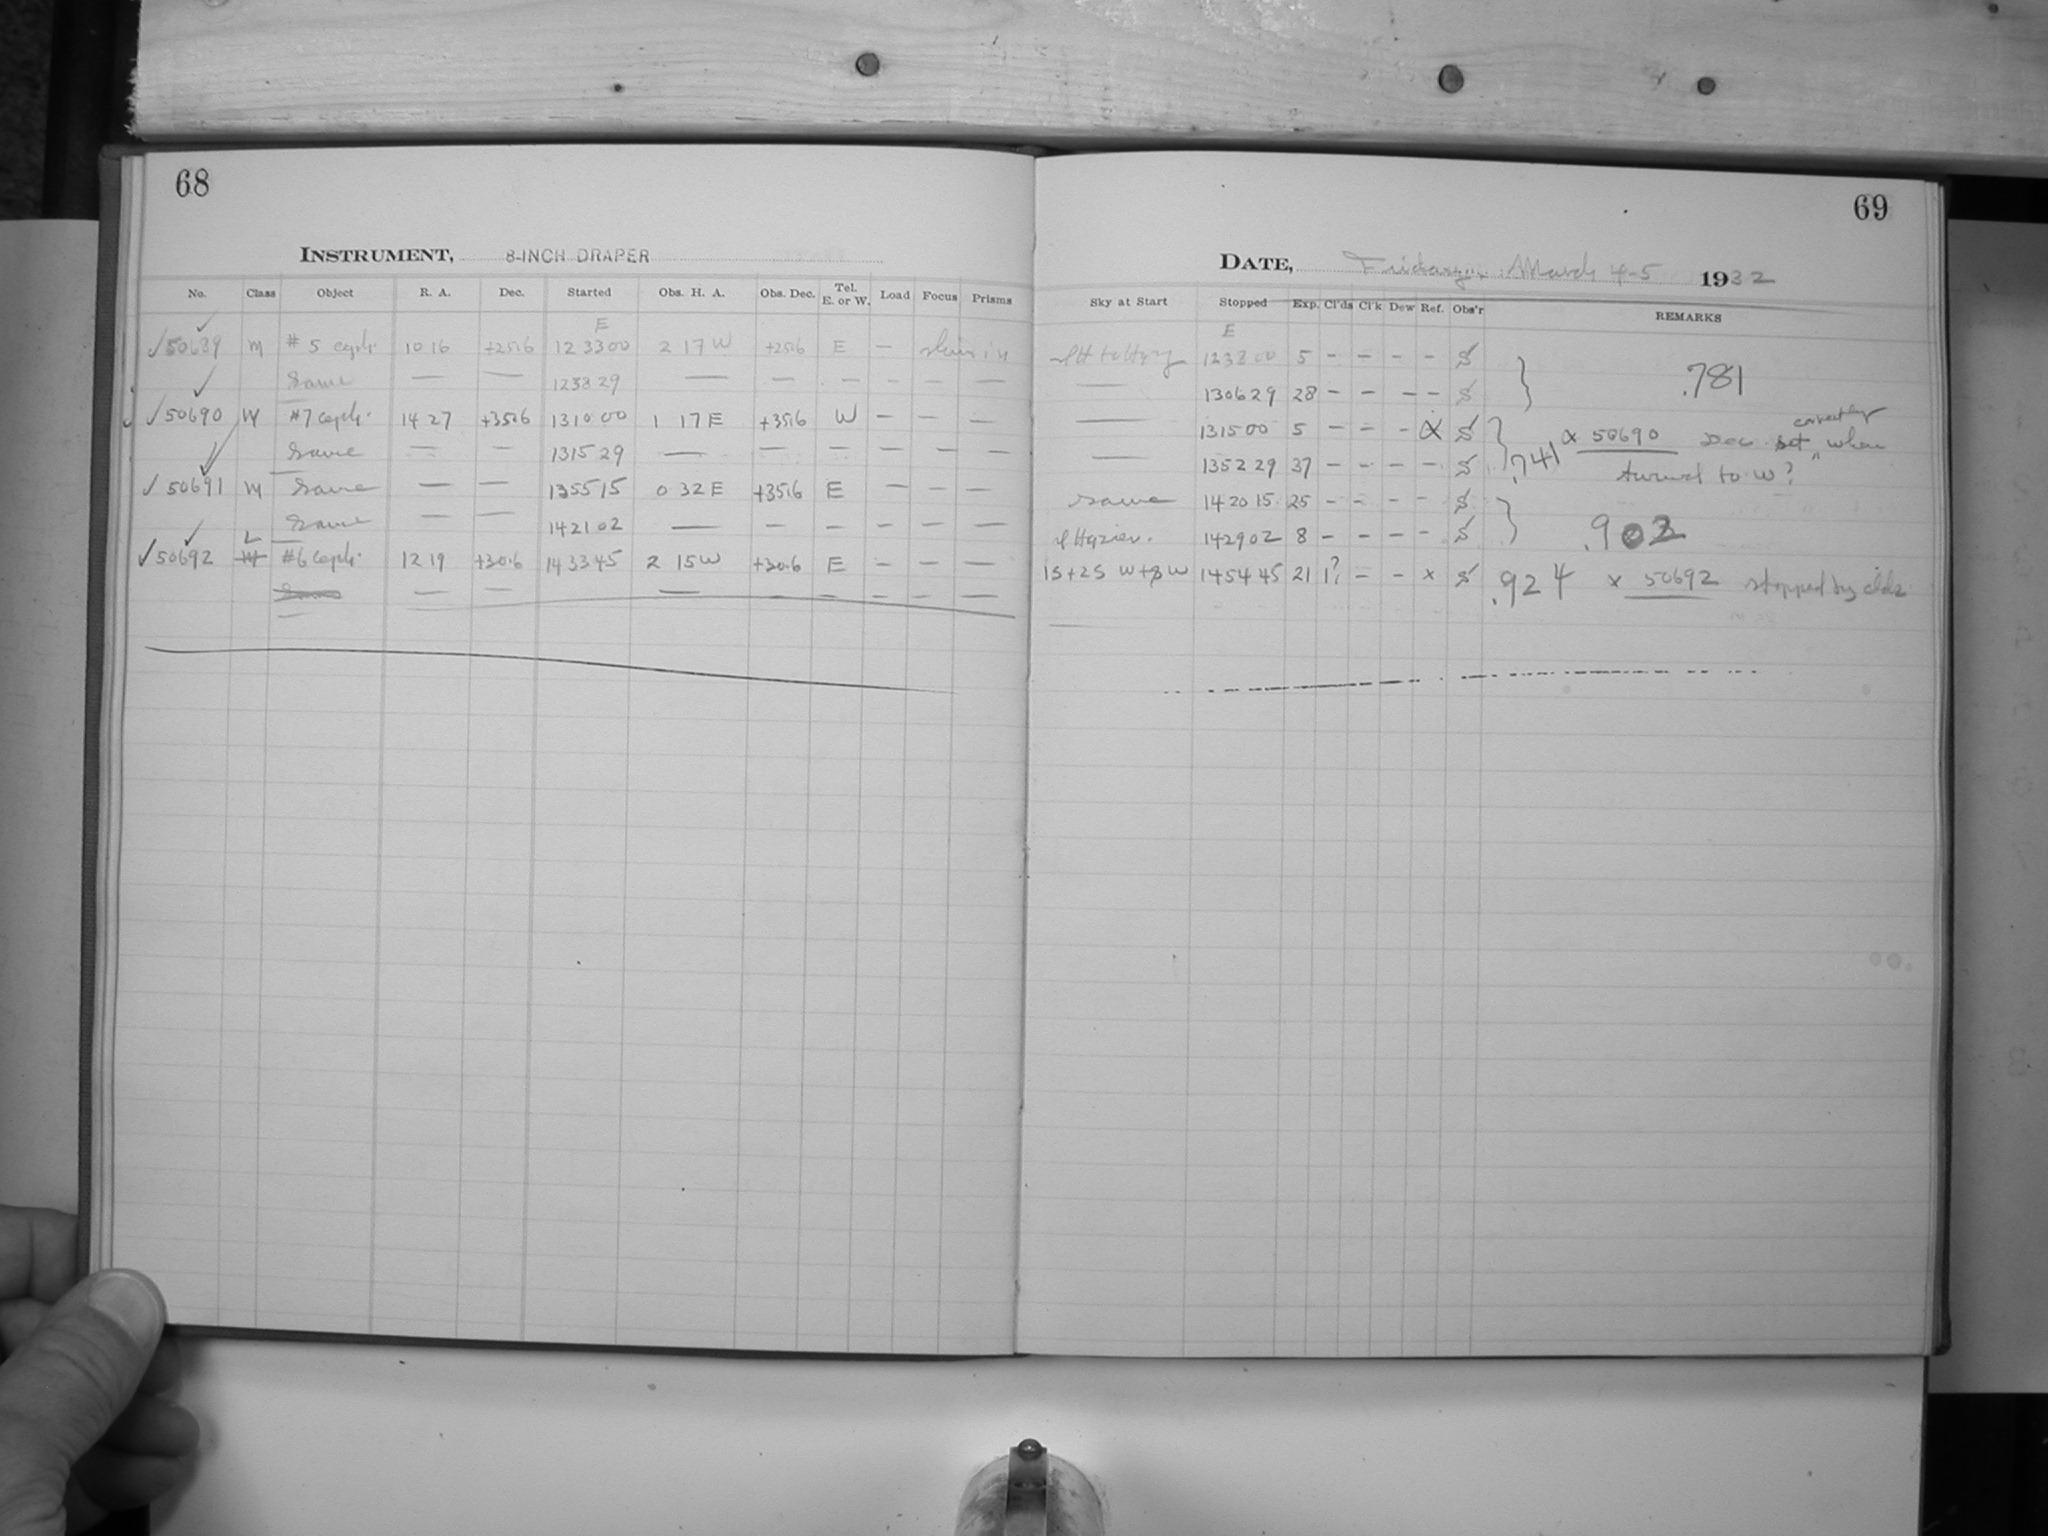 68
INSTRUMENT, 8-INCH DRAPER
No. Class Object R. A. Dec. Started Obs. H. A. Obs. Dec. Tel. E. or W. Load Focus Prisms
E
✓50689 M #5 ceph. 10 16 +25.6 12 33 00 2 17 W +25.6 E —
Same — — 12 38 29 — — — — — —
✓50690 M #7 ceph. 14 27 +35.6 13 10 00 1 17 E +35.6 W — — —
Same — — 13 15 29 — — — — — —
✓50691 M Same — — 13 55 15 0 32 E +35.6 E — — —
Same — — 14 21 02 — — — — — —
L
✓50692 M #6 ceph. 12 19 +30.6 14 33 45 2 15 W +30.6 E — — —
Same — — — — — — — —
69
DATE, Friday, March 4-5 1932
Sky at Start Stopped Exp. Cl'ds Cl'k Dew Ref. Obs'r REMARKS
E
12 38 00 5 – – – – S } .781
— 13 06 29 28 – – – – S
— 13 15 00 5 – – – α S } .741 α 50690 Dec. set correctly when
— 13 52 29 37 – – – – S turned to W?
Same 14 20 15 25 – – – – S } .902
Hazier. 14 29 02 8 – – – – S
1S+2S W+8W 14 54 45 21 1? – – x S .924 x 50692 stopped by clds